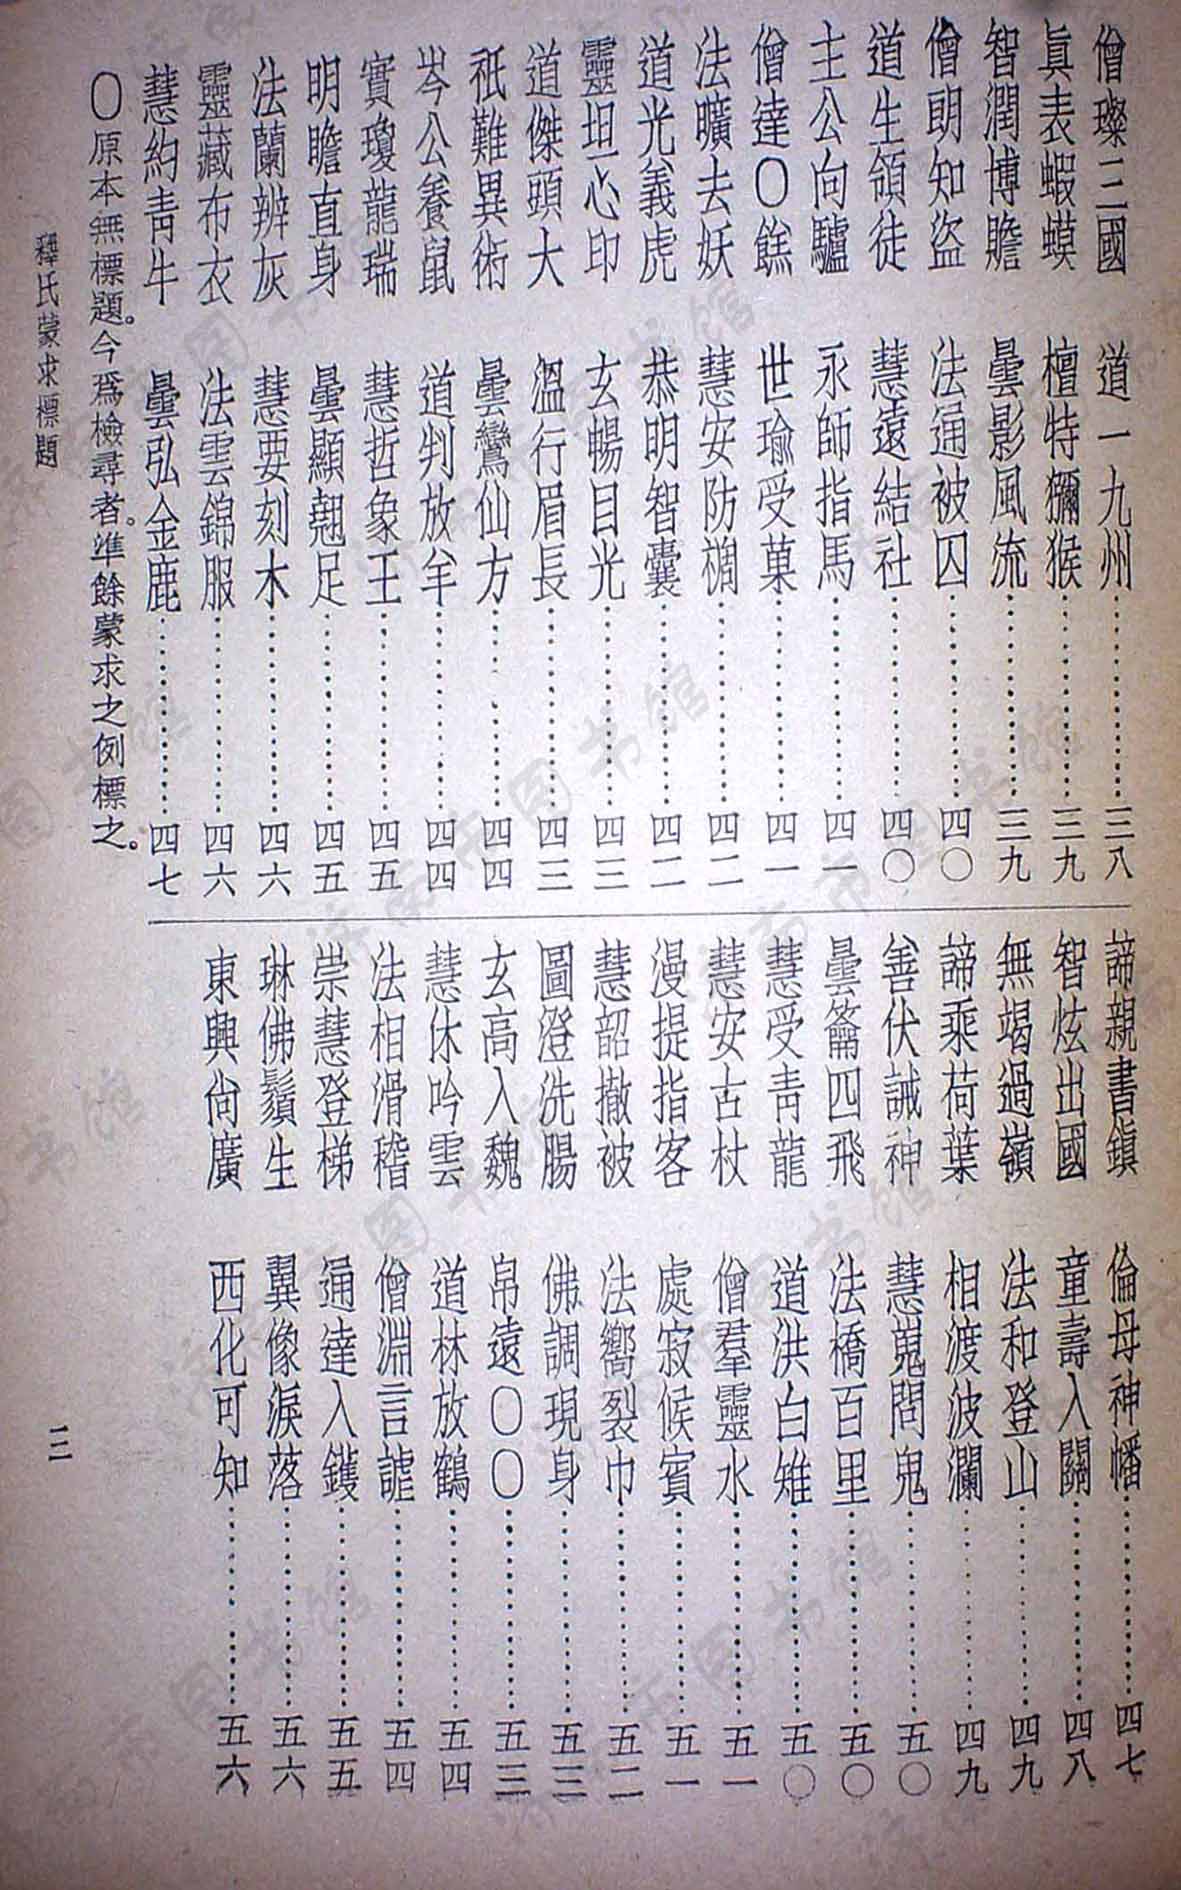 僧璨三國　道一九州……三八
眞表蝦蟆　檀特獼猴……三九
智潤博贍　曇影風流……三九
僧朗知盜　法通被囚……四〇
道生領徒　慧遠結社……四〇
主公向驢　永師指馬……四一
僧達〇餻　世瑜受菓……四一
法曠去妖　慧安防櫩……四二
道光義虎　恭明智囊……四二
靈坦心印　玄暢目光……四三
道傑頭大　溫行眉長……四三
祇難異術　曇鸞仙方……四四
岑公養鼠　道判放羊……四四
實瓊龍瑞　慧哲象王……四五
明瞻直身　曇顯翹足……四五
法蘭辨灰　慧要刻木……四六
靈藏布衣　法雲錦服……四六
慧約靑牛　曇弘金鹿……四七
〇原本無標題。今爲檢尋者。準餘蒙求之例標之。
諦親書鎭　倫母神幡……四七
智炫出國　童壽入關……四八
無竭過嶺　法和登山……四九
諦乘荷葉　相渡波瀾……四九
善伏誡神　慧嵬問鬼……五〇
曇籥四飛　法橋百里……五〇
慧受靑龍　道洪白雉……五〇
慧安古杖　僧羣靈水……五一
漫提指客　處寂候賓……五一
慧韶撤被　法嚮裂巾……五二
圖澄洗腸　佛調現身……五三
玄高入魏　帛遠〇〇……五三
慧休吟雲　道林放鶴……五四
法相滑稽　僧淵言謔……五四
崇慧登梯　通達入鑊……五五
琳佛鬚生　翼像淚落……五六
東興尙廣　西化可知……五六
釋氏蒙求標題
三